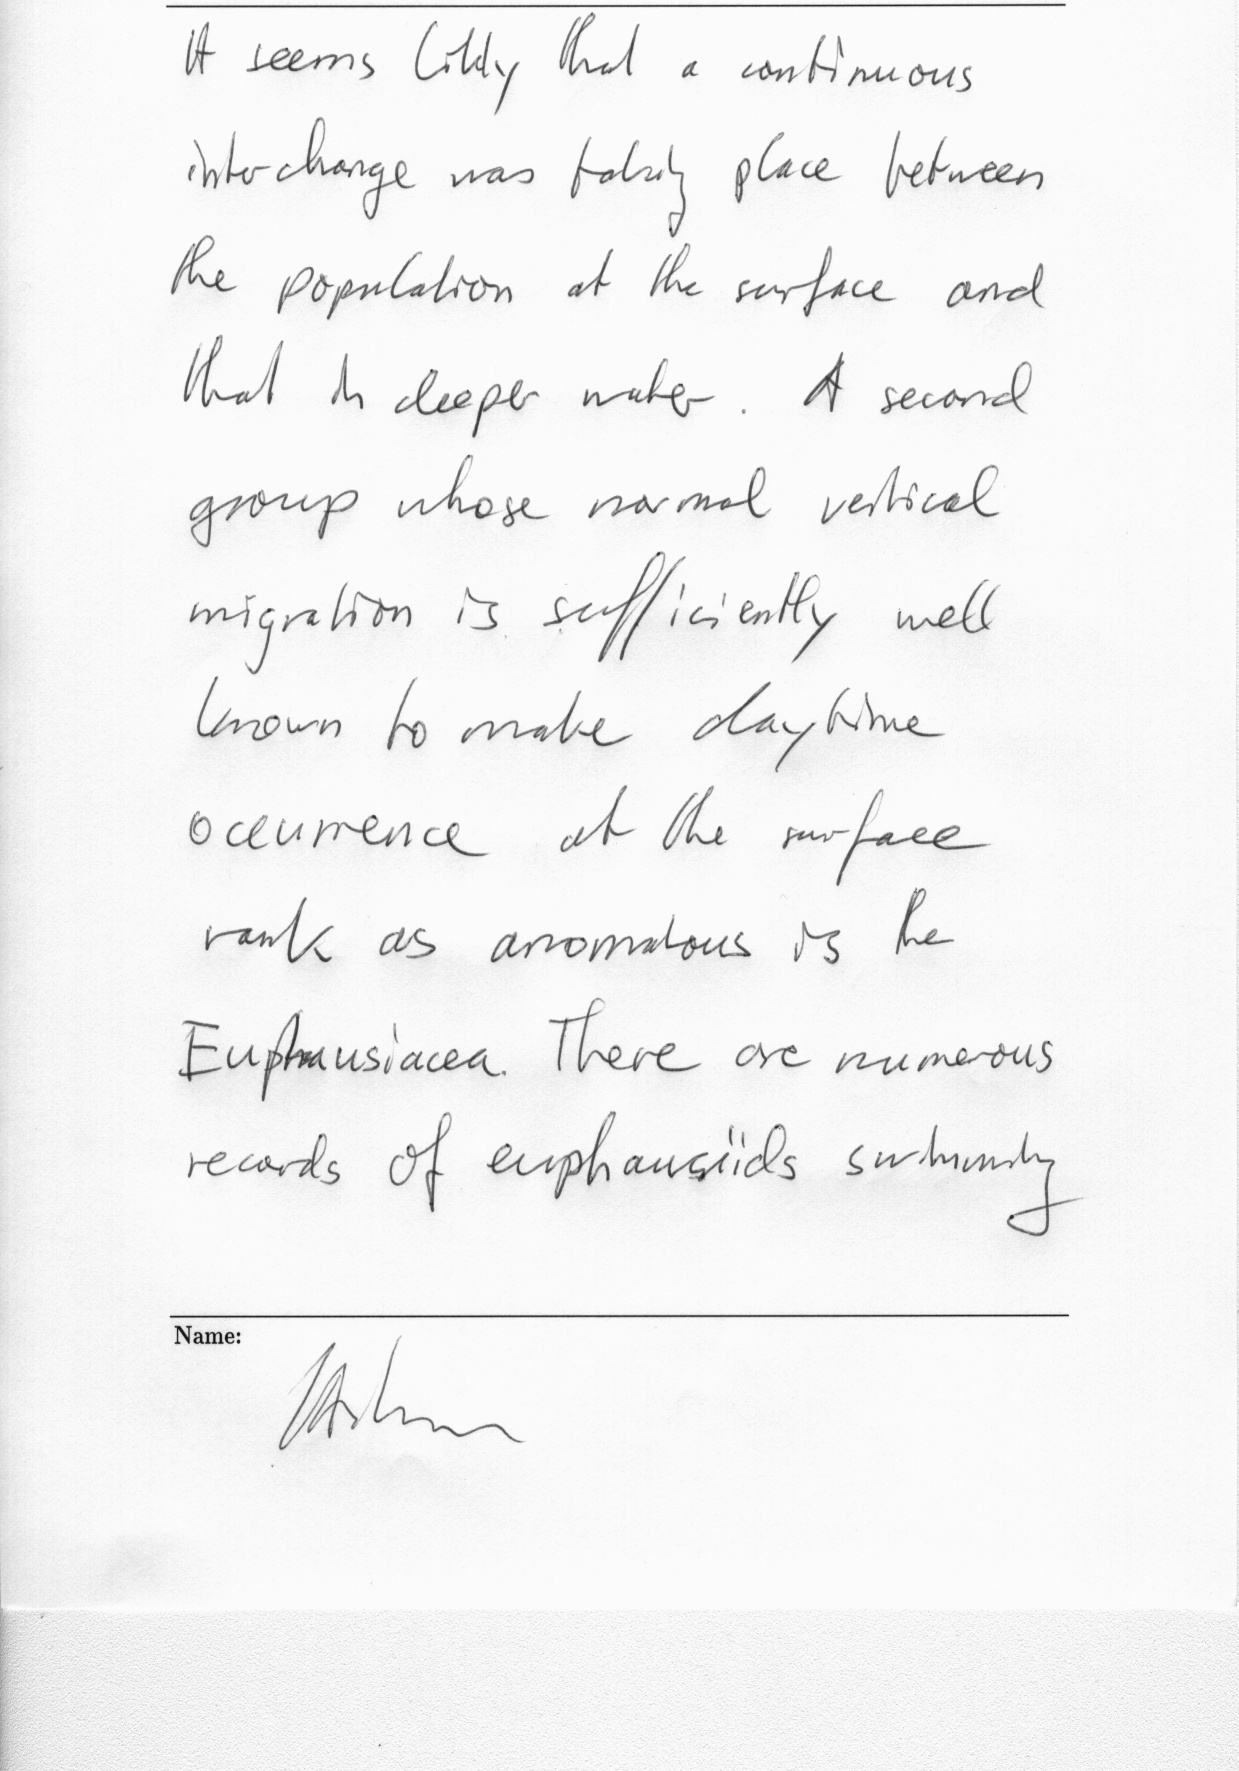 It seems likely that a continuous
interchange was taking place between
the population at the surface and
that in deeper water. A second
group whose normal vertical
migration is sufficiently well
known to make daytime
occurrence at the surface
rank as anomalous is the
Euphausiacea. There are numerous
records of euphausiids swimming
Name: